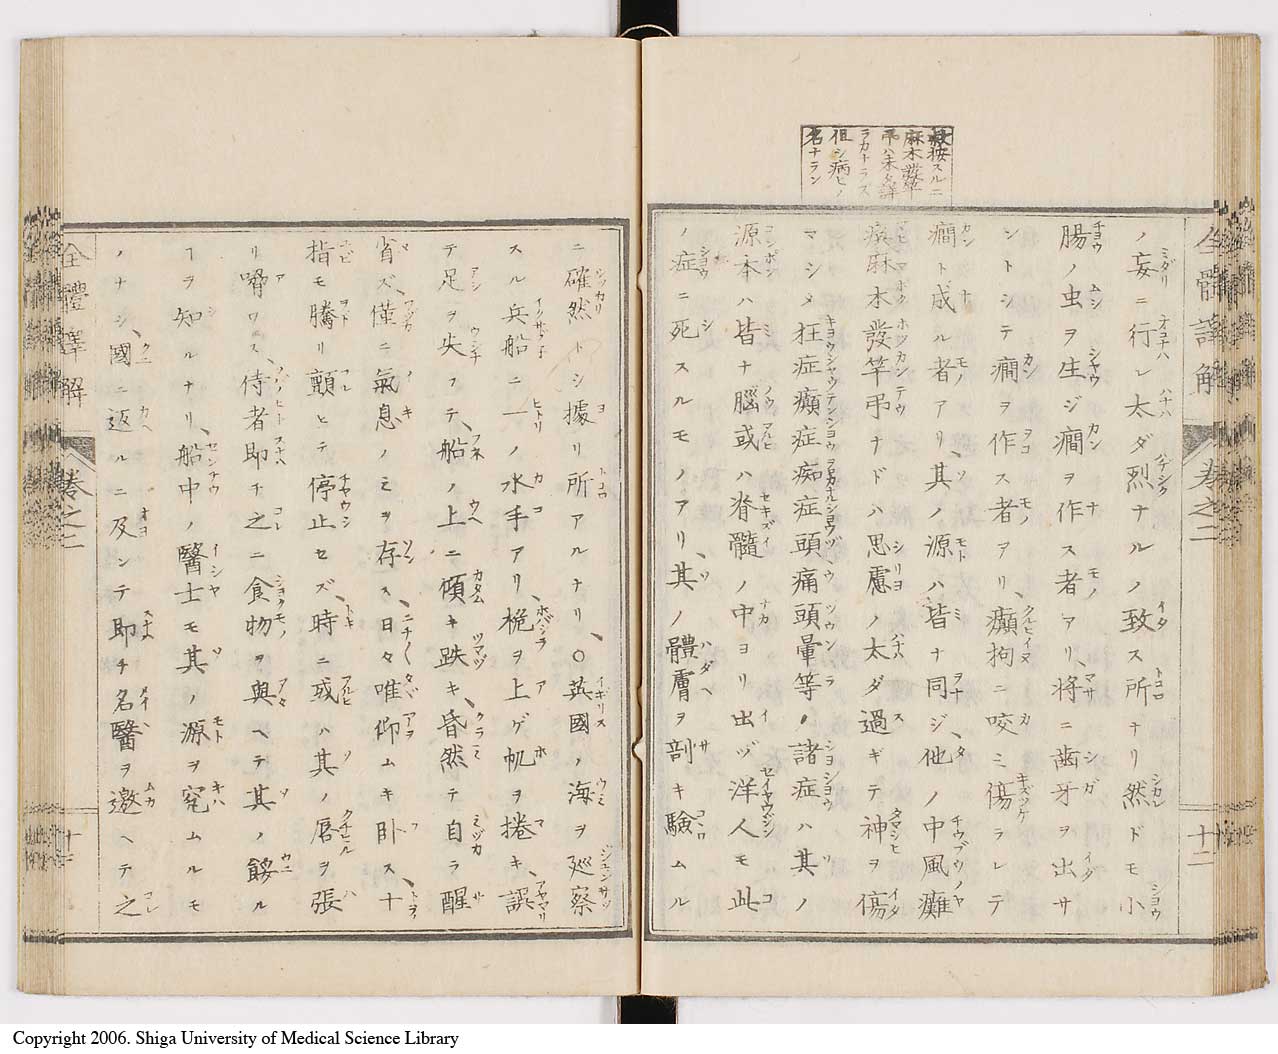 按スルニ
麻木發竿
弔ハ未タ詳
ラカナラス
但シ病ヒノ
名ナラン
全體譯解
卷之二
十二
ノ妄ニ行レ太ダ烈ナルノ致ス所ナリ然ドモ小
腸ノ虫ヲ生ジ癇ヲ作ス者アリ、將ニ齒牙ヲ出サ
ントシテ癇ヲ作ス者アリ、癲狗ニ咬ミ傷ラレテ
癇ト成ル者アリ其ノ源ハ皆ナ同ジ他ノ中風癱
瘓麻木發竿弔ナドハ思慮ノ太ダ過ギテ神ヲ傷
マシメ狂症癲症痴症頭痛頭暈等ノ諸症ハ其ノ
源本ハ皆ナ腦或ハ脊髓ノ中ヨリ出ヅ洋人モ此
ノ症ニ死スルモノアリ、其ノ體膚ヲ剖キ驗ムル
ニ確然トシ據リ所アルナリ、○英國ノ海ヲ廵察
スル兵船ニ一ノ水手アリ、桅ヲ上ゲ帆ヲ捲キ、誤
テ足ヲ失フテ船ノ上ニ傾キ跌キ、昏然テ自ラ醒
省ズ、僅ニ氣息ノミヲ存ス、日々唯仰ムキ臥ス、十
指モ騰リ顫ヒテ停止セズ、時ニ或ハ其ノ唇ヲ張
リ嚼ワス、侍者即チ之ニ食物ヲ與ヘテ其ノ餒ル
ヿヲ知ルナリ、船中ノ醫士モ其ノ源ヲ究ムルモ
ノナシ、國ニ返ルニ及ンテ即チ名醫ヲ邀ヘテ之
全體譯解
卷之二
十二
Copyright 2006. Shiga University of Medical Science Library